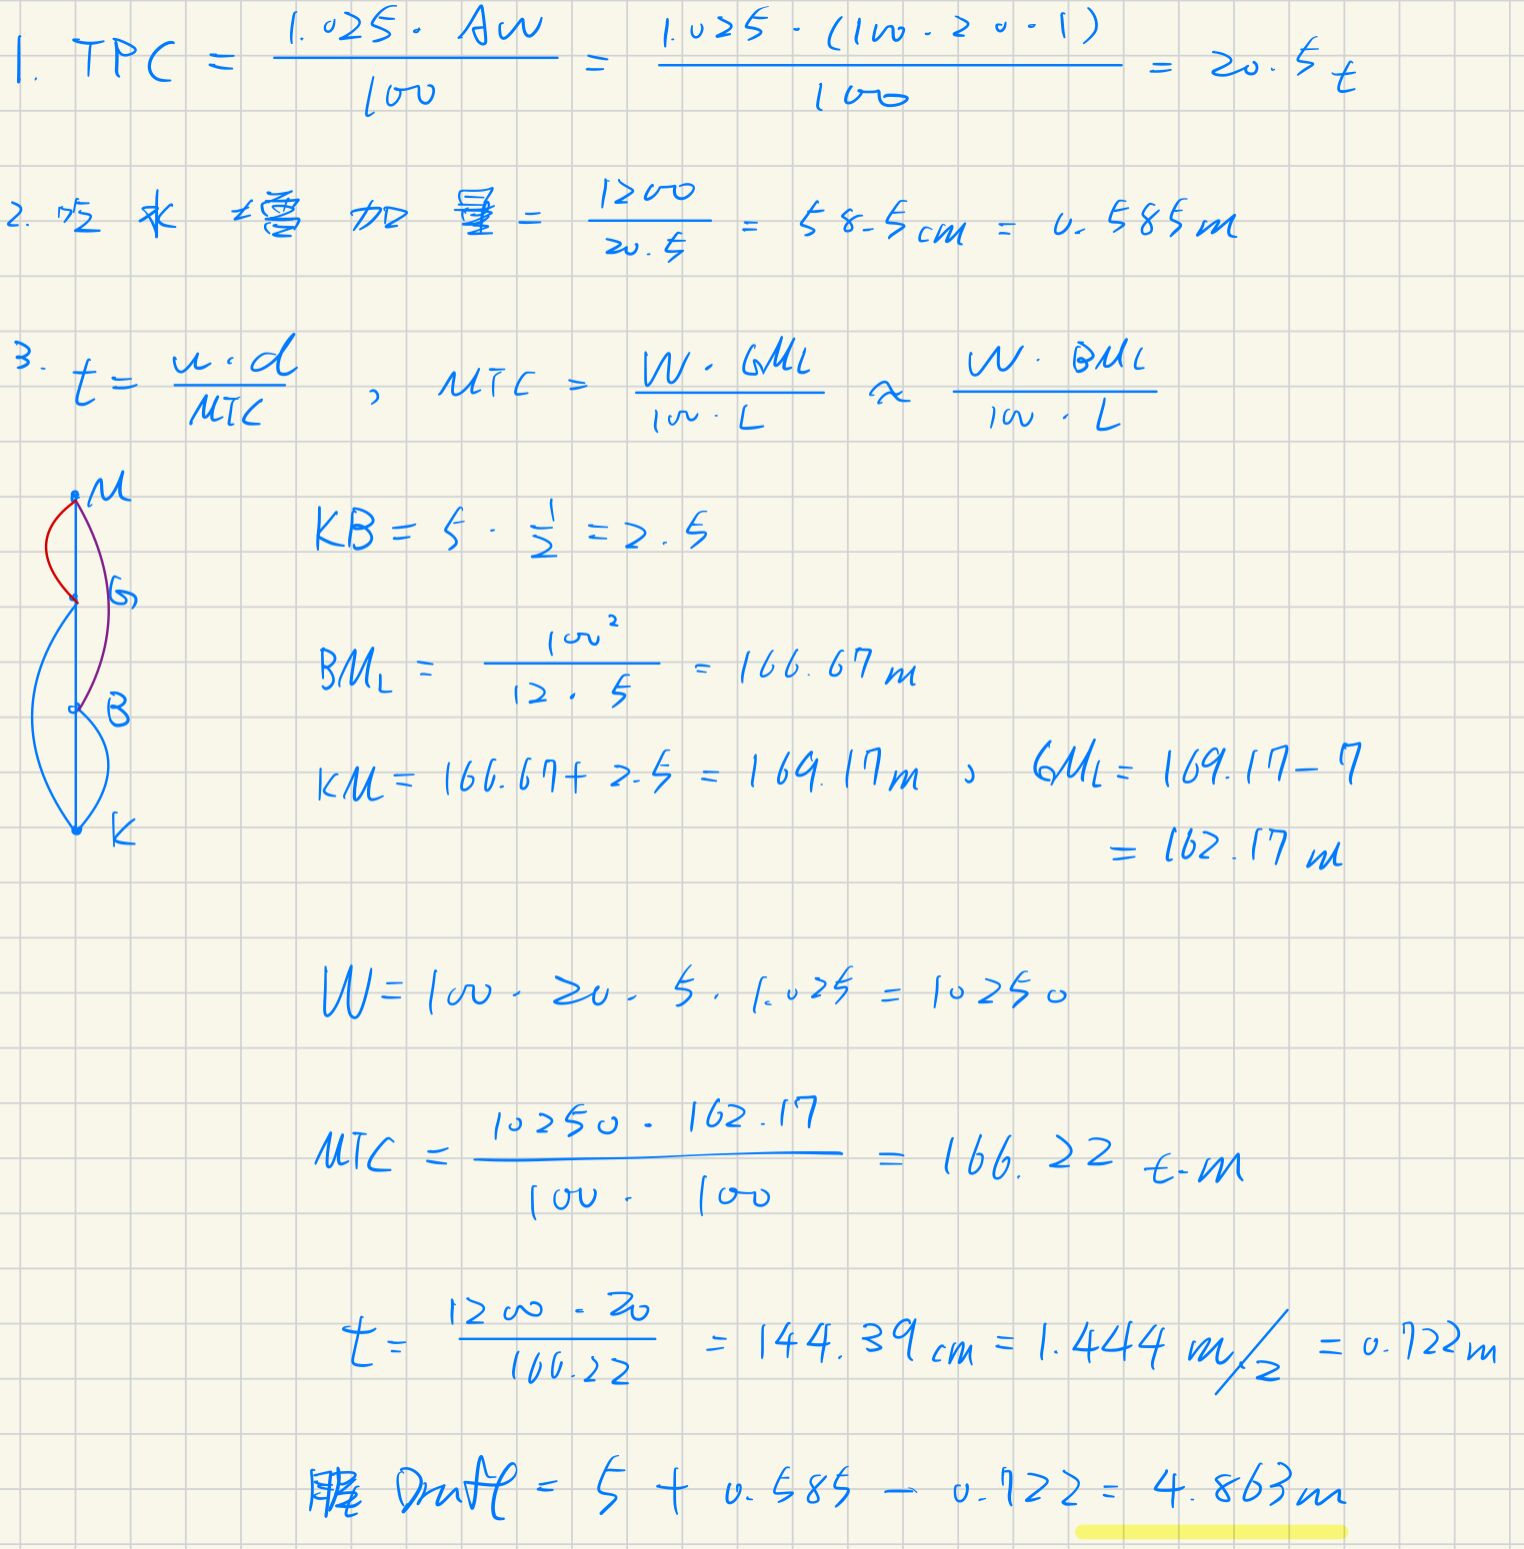 1. TPC = 1.025 · Aw / 100 = 1.025 · (100 · 20 · 1) / 100 = 20.5 t
2. 吃水增加量 = 1200 / 20.5 = 58.5 cm = 0.585 m
3. t = w · d / MTC , MTC = W · GM_L / 100 · L ≈ W · BM_L / 100 · L
M
G
B
K
KB = 5 · 1/2 = 2.5
BM_L = 100² / 12 · 5 = 166.67 m
KM = 166.67 + 2.5 = 169.17 m , GM_L = 169.17 - 7
= 162.17 m
W = 100 · 20 · 5 · 1.025 = 10250
MTC = 10250 · 162.17 / 100 · 100 = 166.22 t-m
t = 1200 · 20 / 166.22 = 144.39 cm = 1.444 m/2 = 0.722 m
Draft = 5 + 0.585 - 0.722 = 4.863 m